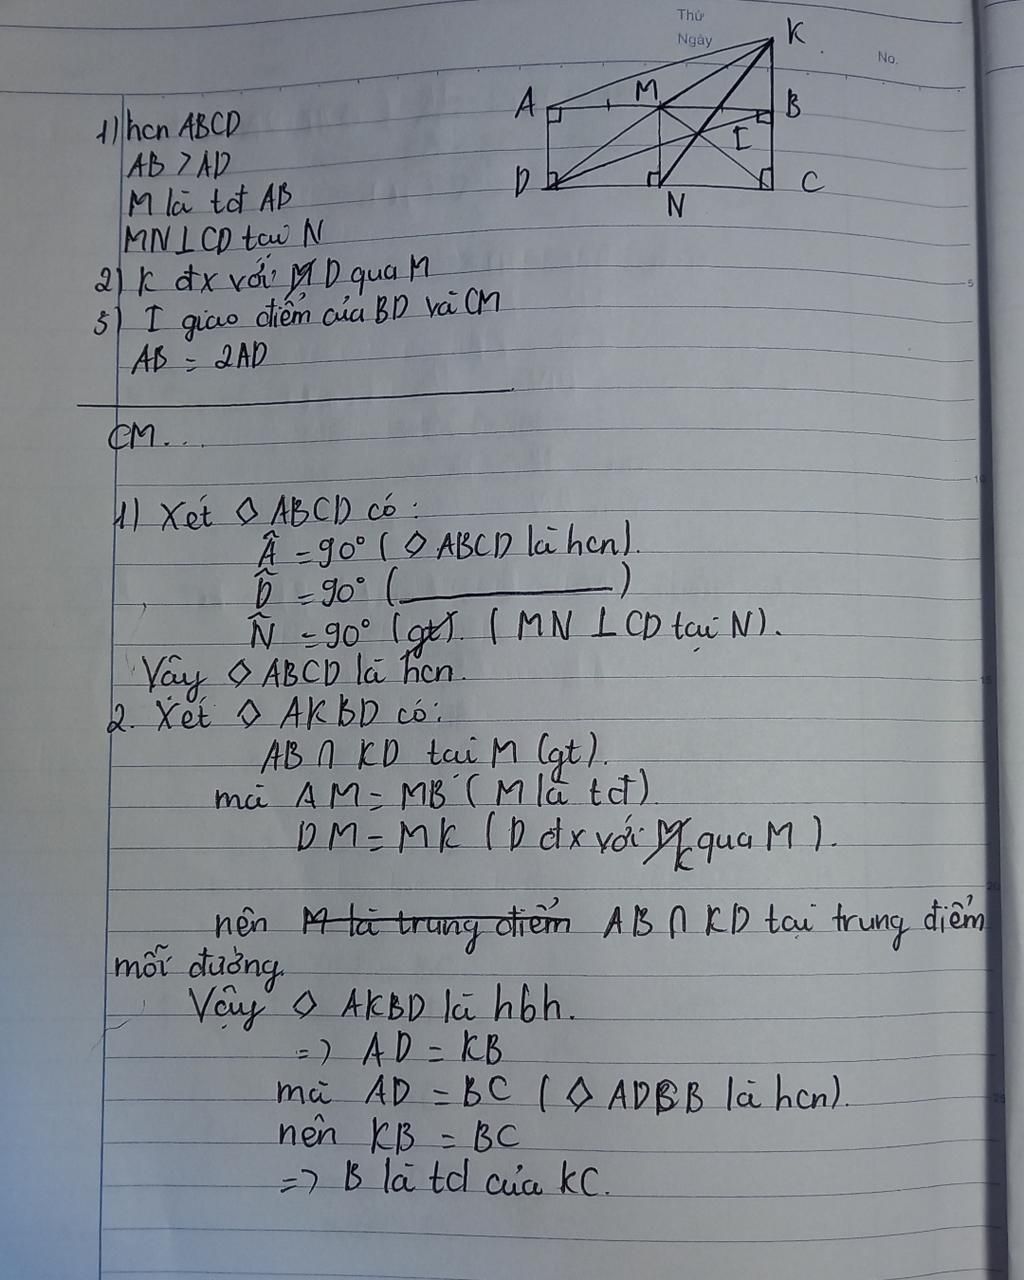 Thứ
Ngày
No.
K
A
M
B
I
D
N
C
1) hcn ABCD
AB > AD
M là tđ AB
MN ⊥ CD tại N
2) K đx với D qua M
3) I giao điểm của BD và CM
AB = 2AD
CM...
1) Xét ◇ ABCD có:
Â = 90° (◇ ABCD là hcn).
D̂ = 90° (__________)
N̂ = 90° (gt). (MN ⊥ CD tại N).
Vậy ◇ ABCD là hcn.
2. Xét ◇ AKBD có:
AB ∩ KD tại M (gt).
mà AM = MB (M là tđ).
DM = MK (D đx với K qua M).
nên M là trung điểm AB ∩ KD tại trung điểm
mỗi đường.
Vậy ◇ AKBD là hbh.
=> AD = KB
mà AD = BC (◇ ADCB là hcn).
nên KB = BC
=> B là td của KC.